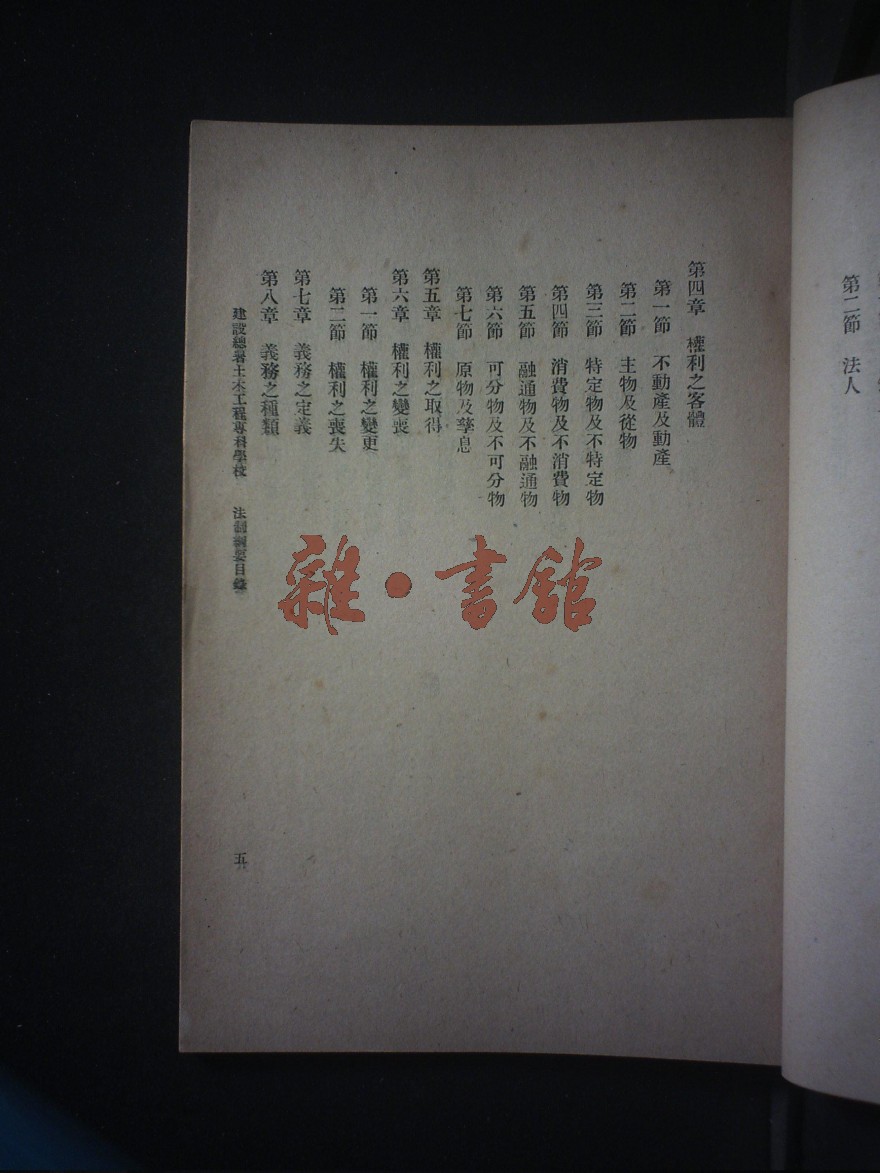 第二節　法人
第四章　權利之客體
第一節　不動產及動產
第二節　主物及從物
第三節　特定物及不特定物
第四節　消費物及不消費物
第五節　融通物及不融通物
第六節　可分物及不可分物
第七節　原物及孳息
第五章　權利之取得
第六章　權利之變喪
第一節　權利之變更
第二節　權利之喪失
第七章　義務之定義
第八章　義務之種類
建設總署土木工程專科學校　法制綱要目錄
五
雜·書館